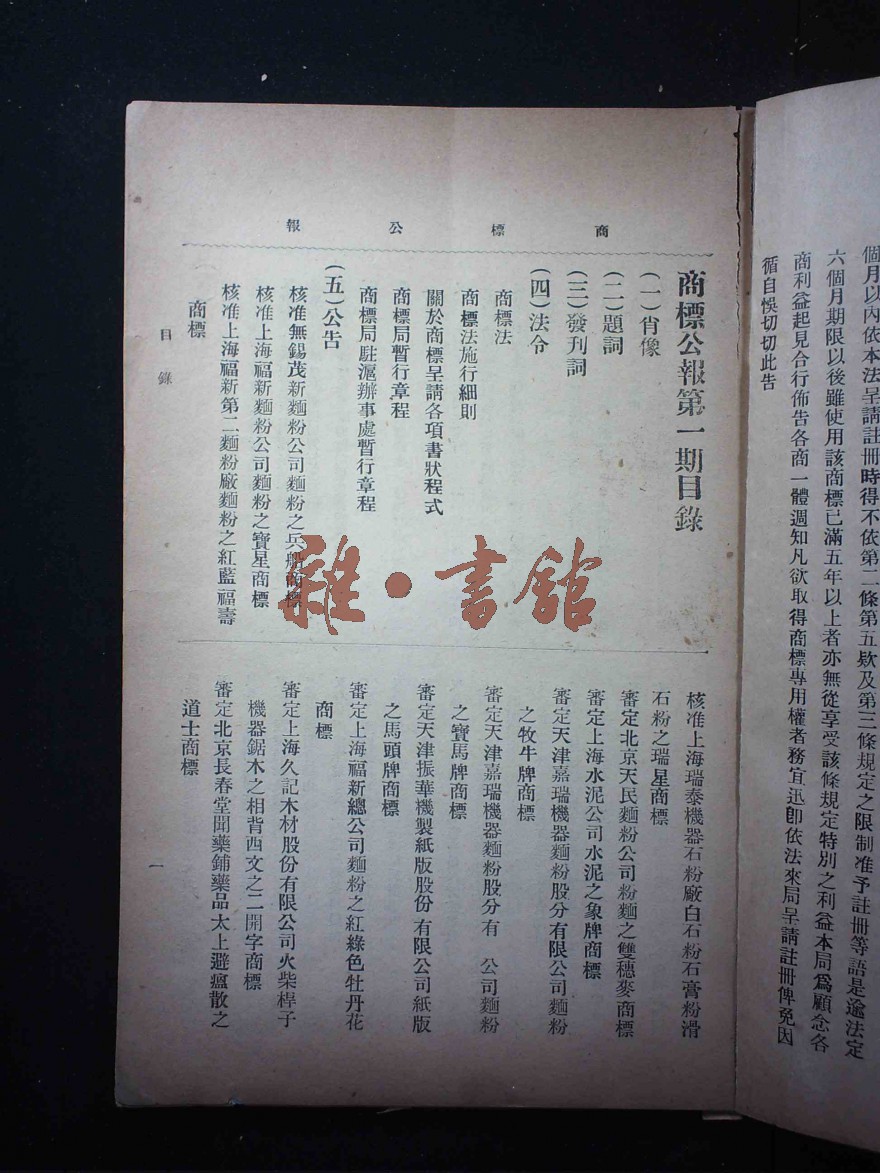 個月以內依本法呈請註冊時得不依第二條第五欵及第三條規定之限制准予註冊等語是逾法定
六個月期限以後雖使用該商標已滿五年以上者亦無從享受該條規定特別之利益本局爲顧念各
商利益起見合行佈告各商一體週知凡欲取得商標專用權者務宜迅卽依法來局呈請註冊俾免因
循自悞切切此告
商標公報
商標公報第一期目錄
(一)肖像
(二)題詞
(三)發刊詞
(四)法令
商標法
商標法施行細則
關於商標呈請各項書狀程式
商標局暫行章程
商標局駐滬辦事處暫行章程
(五)公告
核准無錫茂新麵粉公司麵粉之兵船商標
核准上海福新麵粉公司麵粉之寶星商標
核准上海福新第二麵粉廠麵粉之紅藍福壽
商標
核准上海瑞泰機器石粉廠白石粉石膏粉滑
石粉之瑞星商標
審定北京天民麵粉公司粉麵之雙穗麥商標
審定上海水泥公司水泥之象牌商標
審定天津嘉瑞機器麵粉股分有限公司麵粉
之牧牛牌商標
審定天津嘉瑞機器麵粉股分有 公司麵粉
之寶馬牌商標
審定天津振華機製紙版股份有限公司紙版
之馬頭牌商標
審定上海福新總公司麵粉之紅綠色牡丹花
商標
審定上海久記木材股份有限公司火柴桿子
機器鋸木之相背西文之二開字商標
審定北京長春堂聞藥鋪藥品太上避瘟散之
道士商標
目錄
一
雜·書館